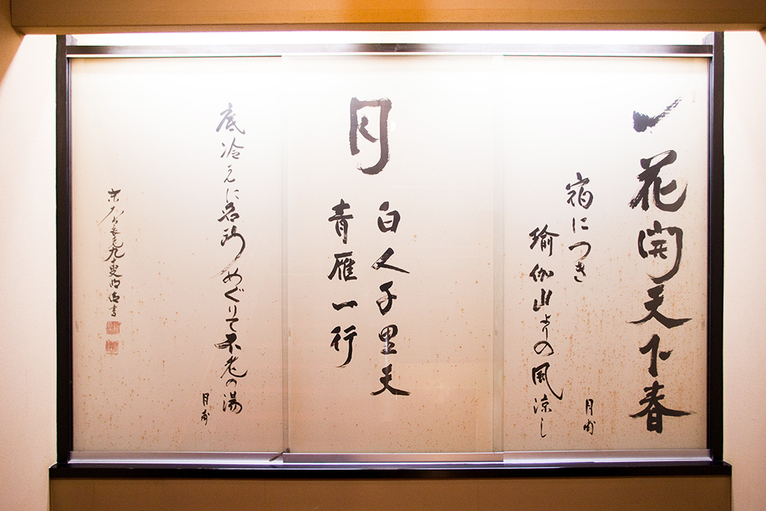 一花開天下春
宿につき
瑜伽山よりの風涼し
月
白
里天
青雁一行
底冷えに名所めぐりて不老の湯